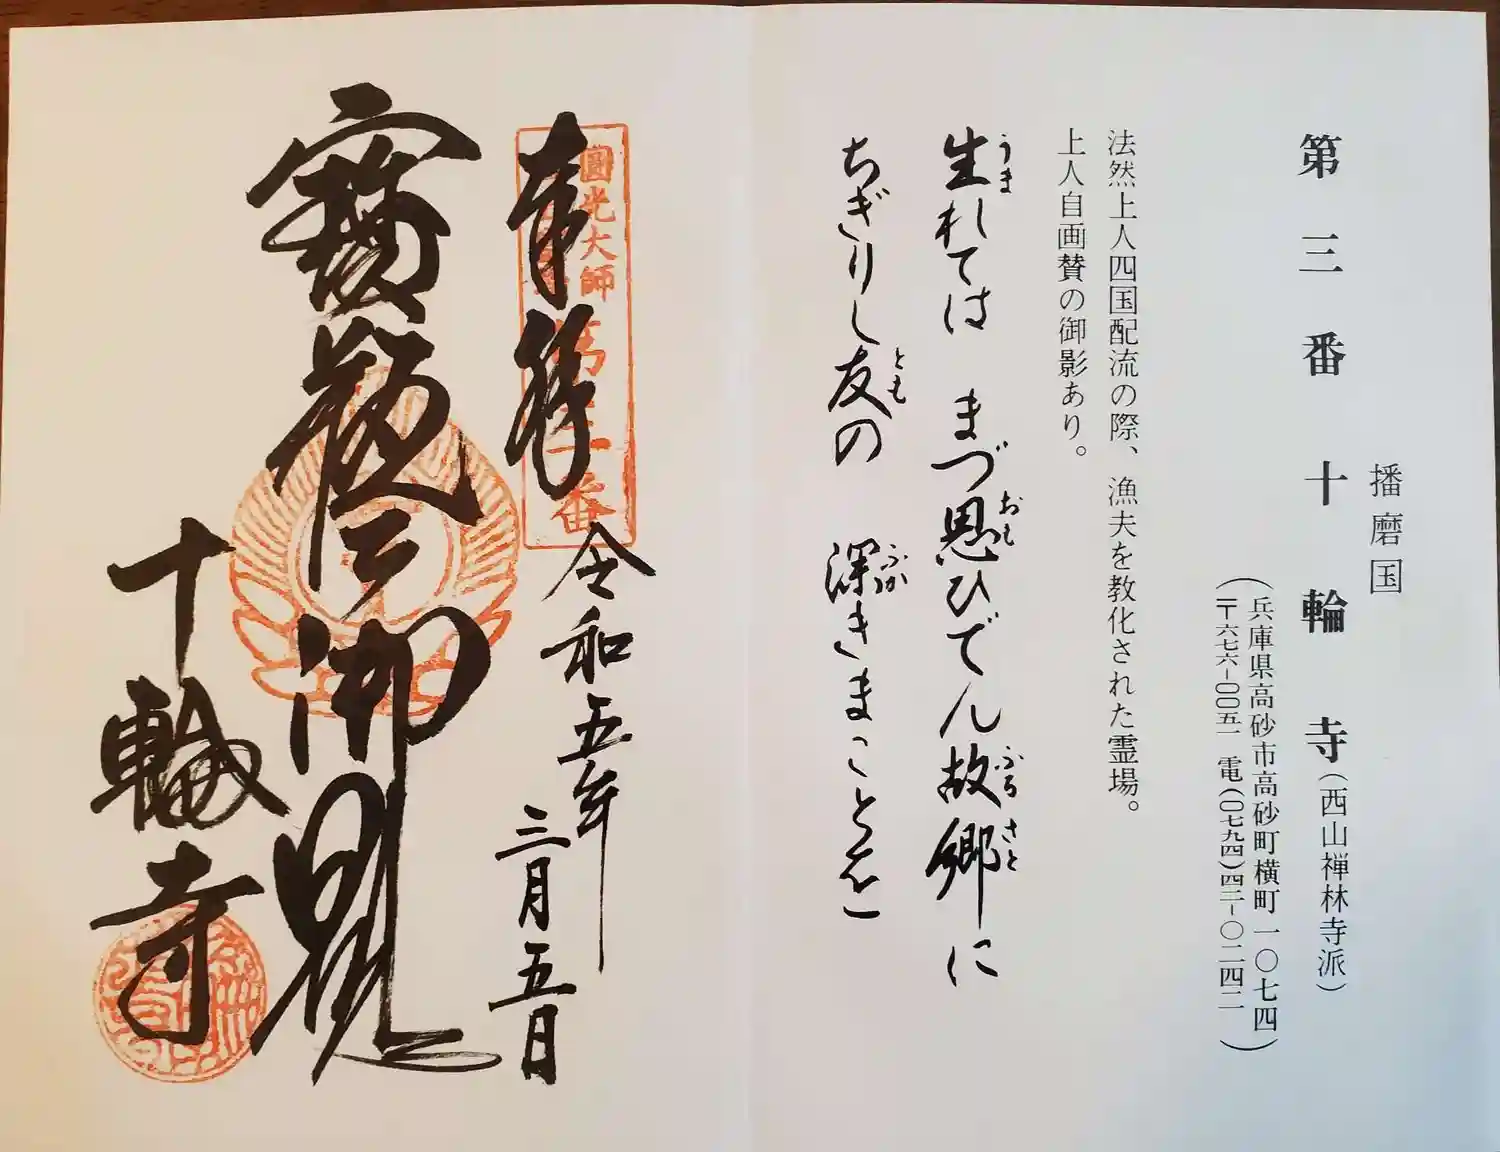 播磨国
第三番 十輪寺(西山禅林寺派)
(兵庫県高砂市高砂町横町一〇七四)
(〒六七六-〇〇五一 電(〇七九四)四二-〇二四二)
法然上人四国配流の際、漁夫を教化された霊場。
上人自画賛の御影あり。
うま おも ふるさと
生れては まづ思ひでん故郷に
とも ふか
ちぎりし友の 深きまことを
圓光大師
第三番
奉拝 令和五年
三月五日
寶瓶之御影
十輪寺